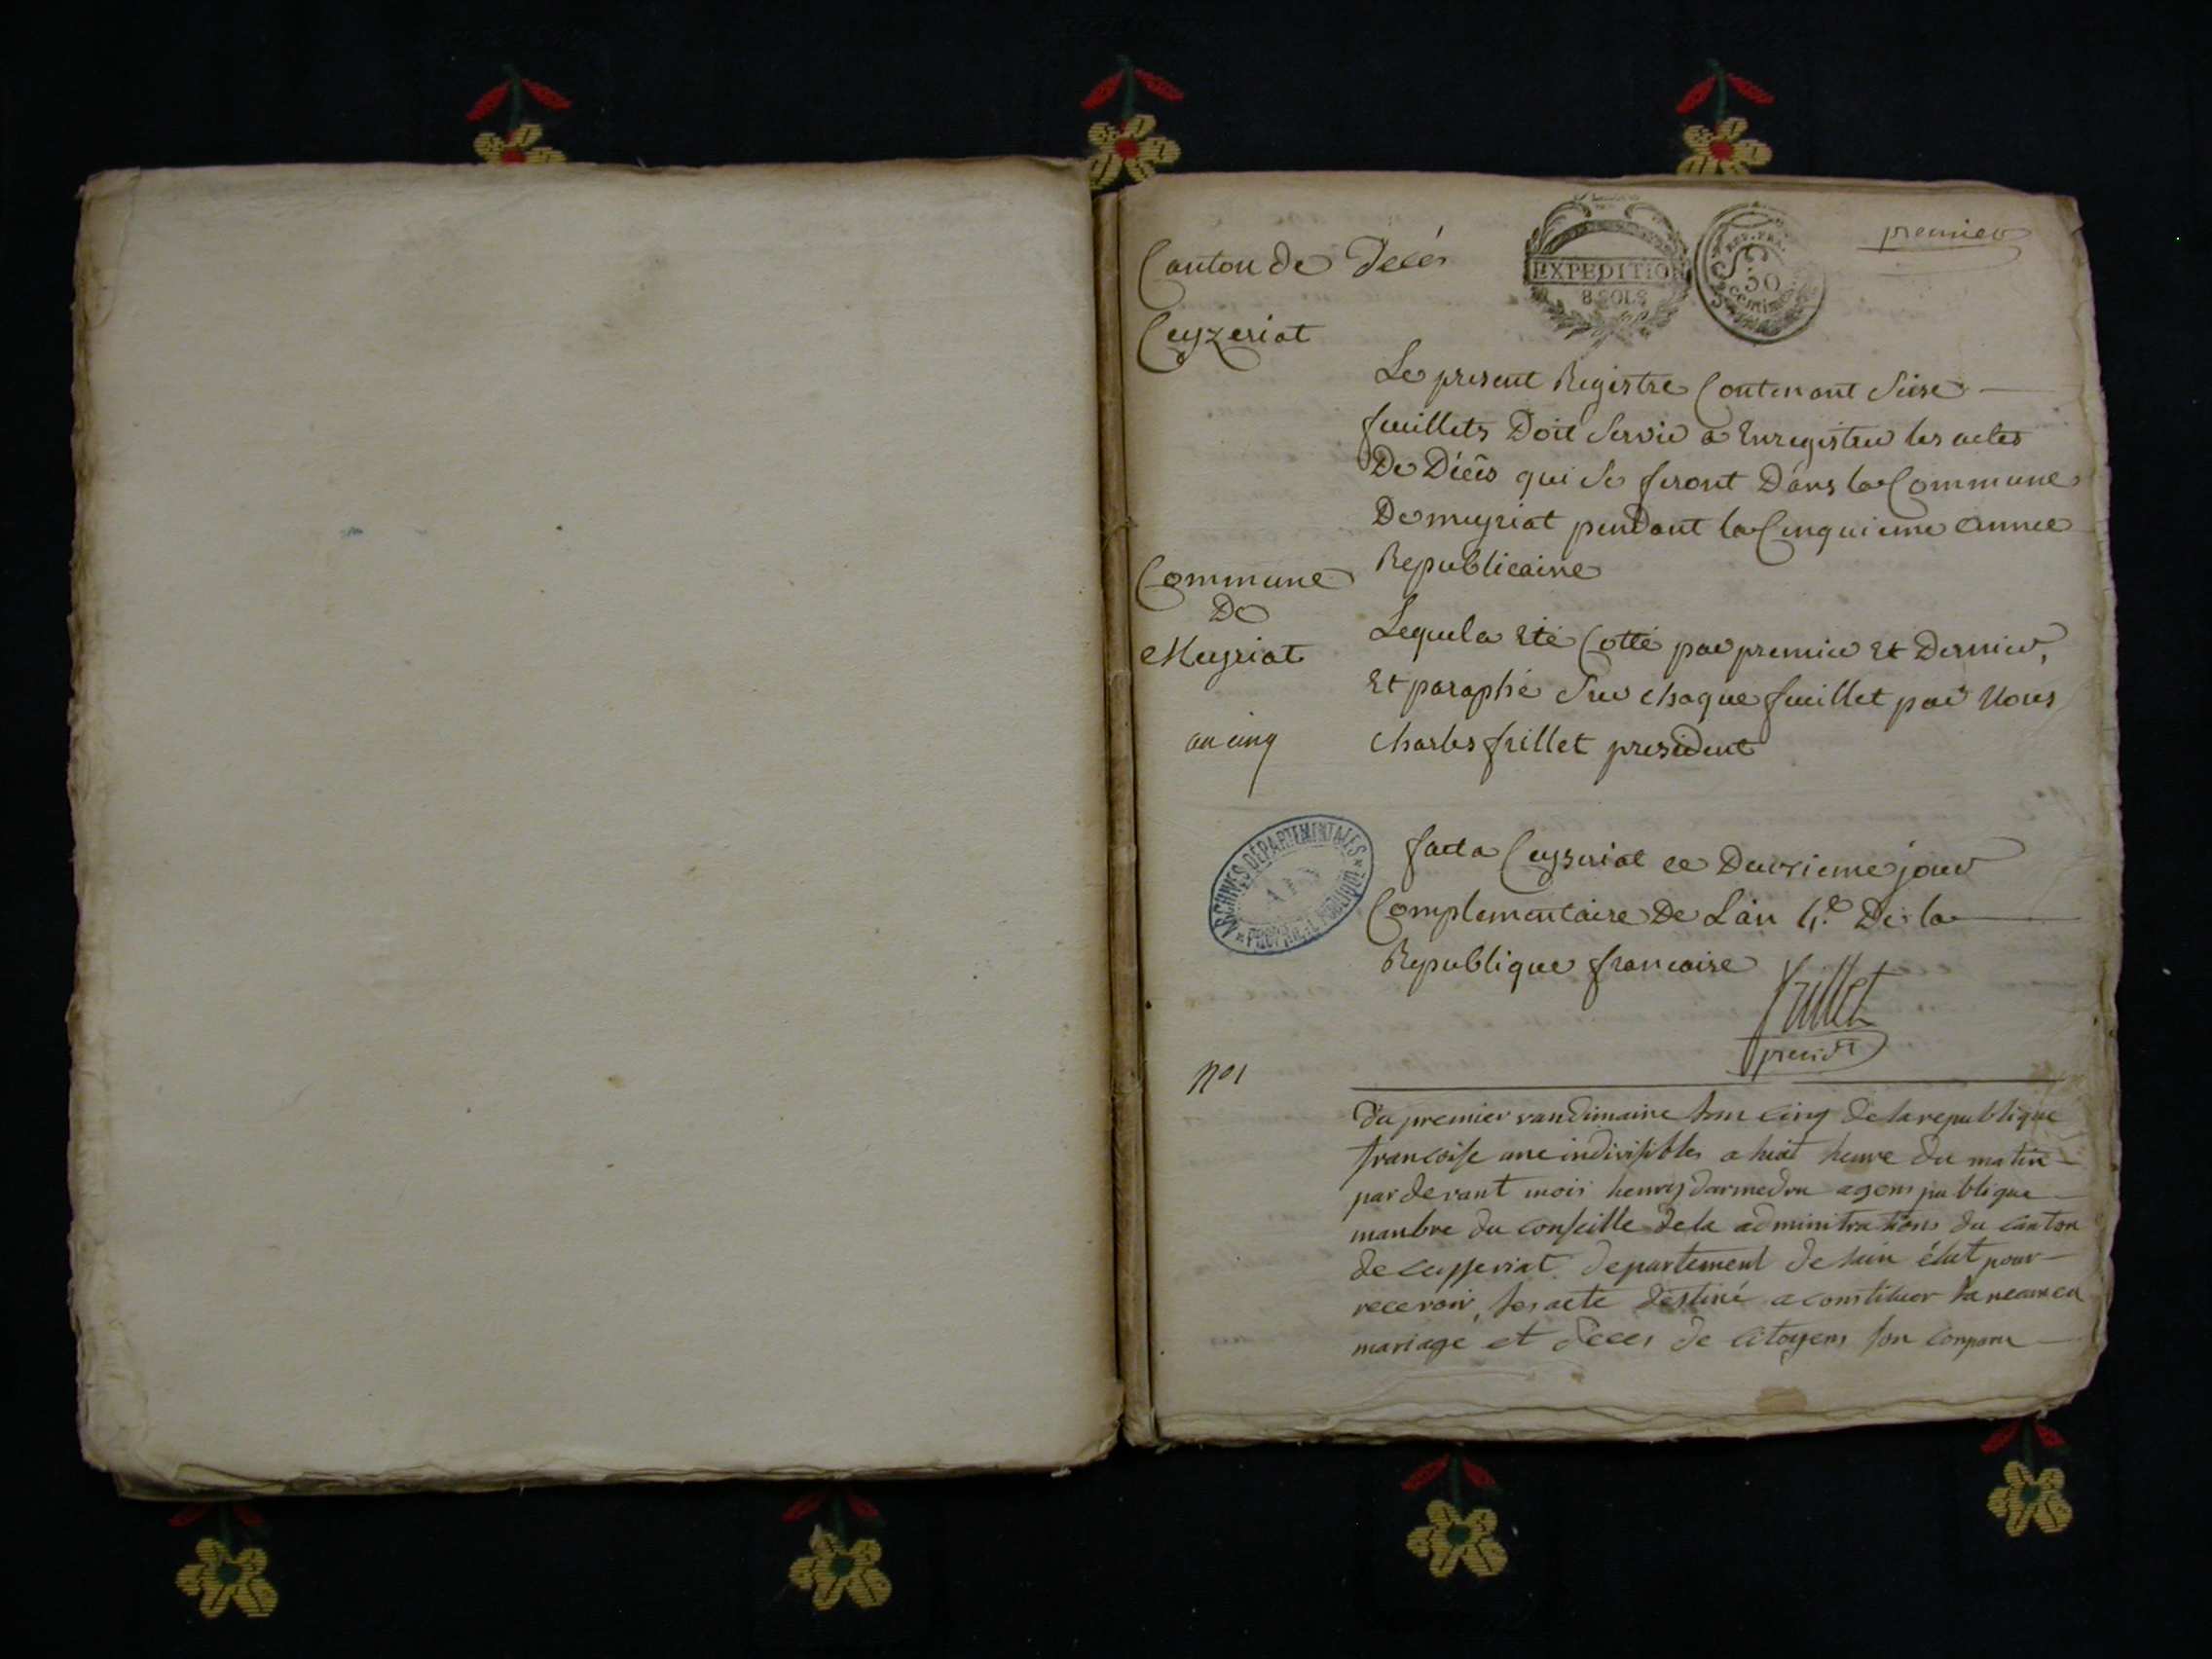 premier
Canton de Décés
Ceyzeriat
EXPEDITION
8 SOLS
REP. FRA.
50
centimes
Le present Registre Contenant Seise
feuillets Doit Servir a Enregistrer les actes
De Décès qui Se feront Dans la Commune
De meyriat pendant la Cinquieme annee
Republicaine
Commune
De
Meyriat
an cinq
Lequel a Eté Cotté par premier Et Dernier,
Et paraphé Sur chaque feuillet par Nous
Charles frillet president
ARCHIVES DÉPARTEMENTALES
AIN
PROPRIÉTÉ PUBLIQUE
fait a Ceyzeriat ce Deuxieme jour
Complementaire De L'an 4.e De la
Republique francaise
frillet
presidt
No 1
du premier vandimaire lan cinq de la republique
francoise une indivisibles a huit heure du matin
par devant mois henry darmedru agens publique
manbre du conseille de la adminitrations du canton
de ceysseriat departement de lain élut pour
recevoir les acte destiné a constituer la neance
mariage et deces de citoyens son conparu